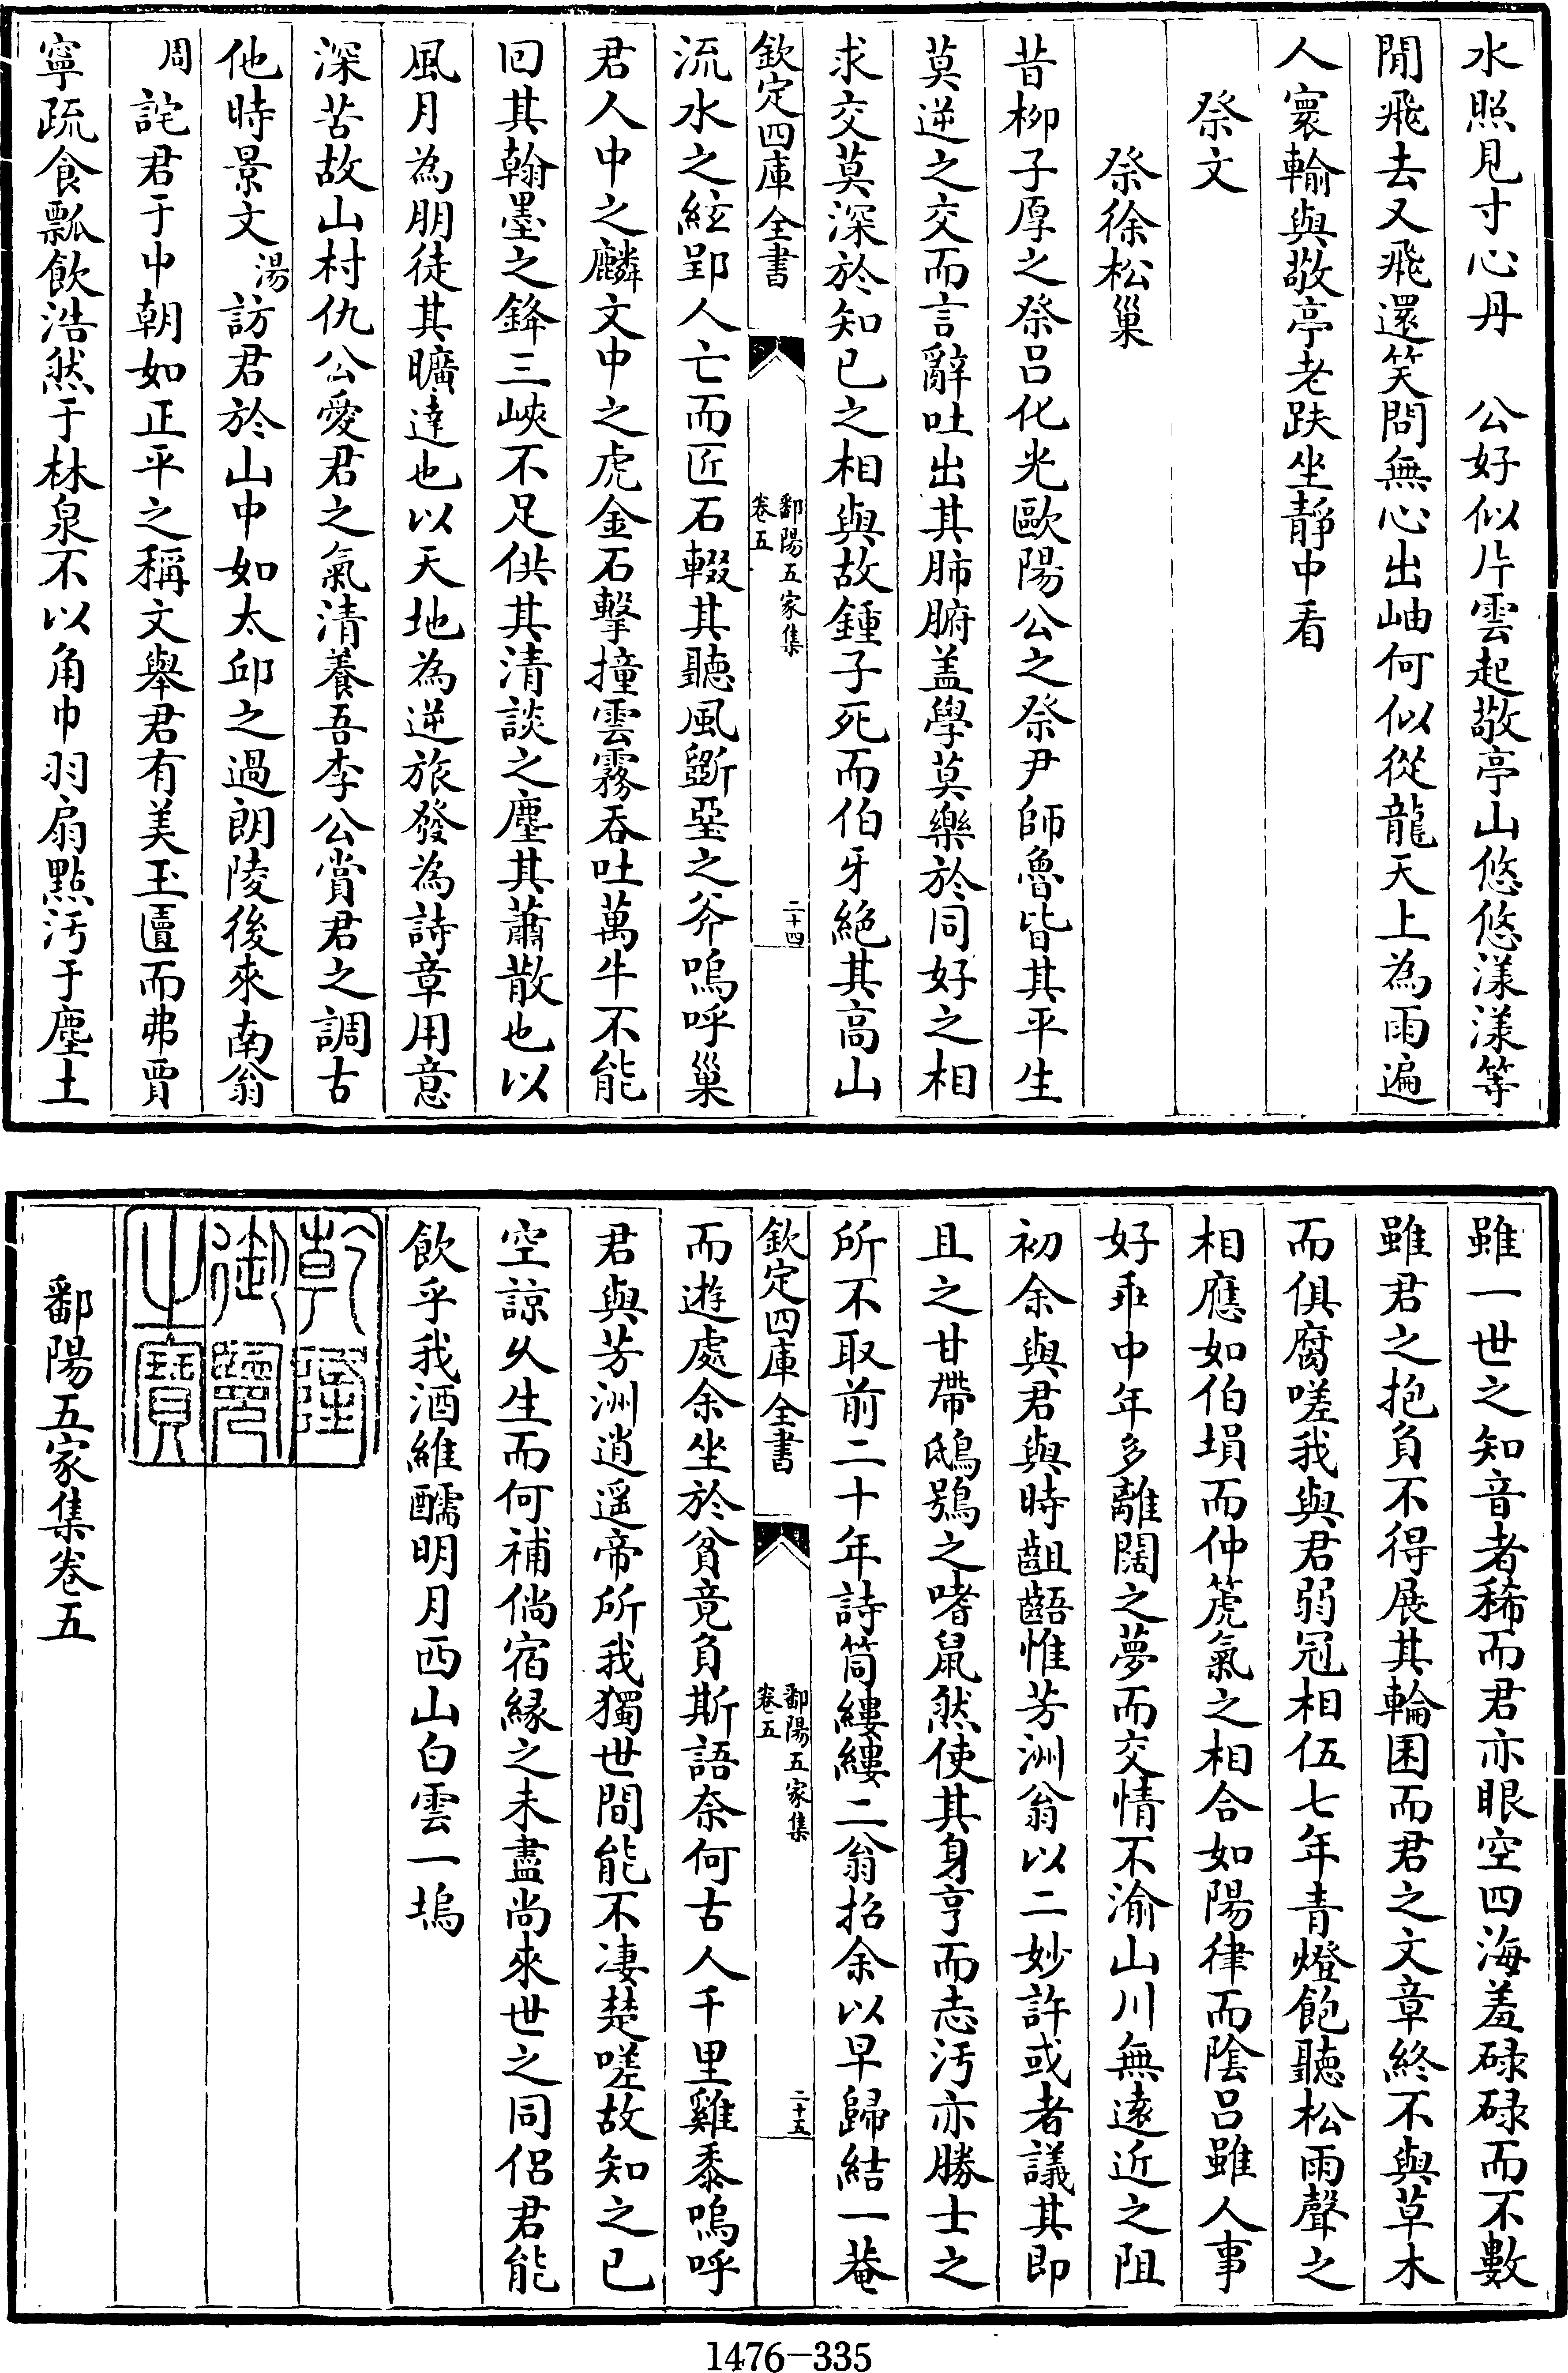 水照見寸心丹　公好似片雲起敬亭山悠悠漾漾等
閒飛去又飛還笑問無心出岫何似從龍天上為雨遍
人寰輸與敬亭老趺坐靜中看
祭文
祭徐松巢
昔柳子厚之祭呂化光歐陽公之祭尹師魯皆其平生
莫逆之交而言辭吐出其肺腑盖學莫樂於同好之相
求交莫深於知已之相與故鍾子死而伯牙絕其高山
欽定四庫全書
鄱陽五家集
卷五
二十四
流水之絃郢人亡而匠石輟其聽風斵堊之斧嗚呼巢
君人中之麟文中之虎金石擊撞雲霧吞吐萬牛不能
回其翰墨之鋒三峽不足供其清談之麈其蕭散也以
風月為朋徒其曠達也以天地為逆旅發為詩章用意
深苦故山村仇公愛君之氣清養吾李公賞君之調古
他時景文湯訪君於山中如太邱之過朗陵後來南翁
周詫君于中朝如正平之稱文舉君有美玉匵而弗賈
寧疏食瓢飲浩然于林泉不以角巾羽扇點汚于塵土
雖一世之知音者稀而君亦眼空四海羞碌碌而不數
雖君之抱負不得展其輪囷而君之文章終不與草木
而俱腐嗟我與君弱冠相伍七年青燈飽聽松雨聲之
相應如伯塤而仲篪氣之相合如陽律而隂呂雖人事
好乖中年多離闊之夢而交情不渝山川無遠近之阻
初余與君與時齟齬惟芳洲翁以二妙許或者議其即
且之甘帶鴟鴞之嗜鼠然使其身亨而志汚亦勝士之
所不取前二十年詩筒縷縷二翁招余以早歸結一菴
欽定四庫全書
鄱陽五家集
卷五
二十五
而遊處余坐於貧竟負斯語奈何古人千里雞黍嗚呼
君與芳洲逍遥帝所我獨世間能不凄楚嗟故知之已
空諒乆生而何補倘宿緣之未盡尚來世之同侶君能
飲乎我酒維醹明月西山白雲一塢
乾隆
御覽
之寶
鄱陽五家集卷五
1476-335